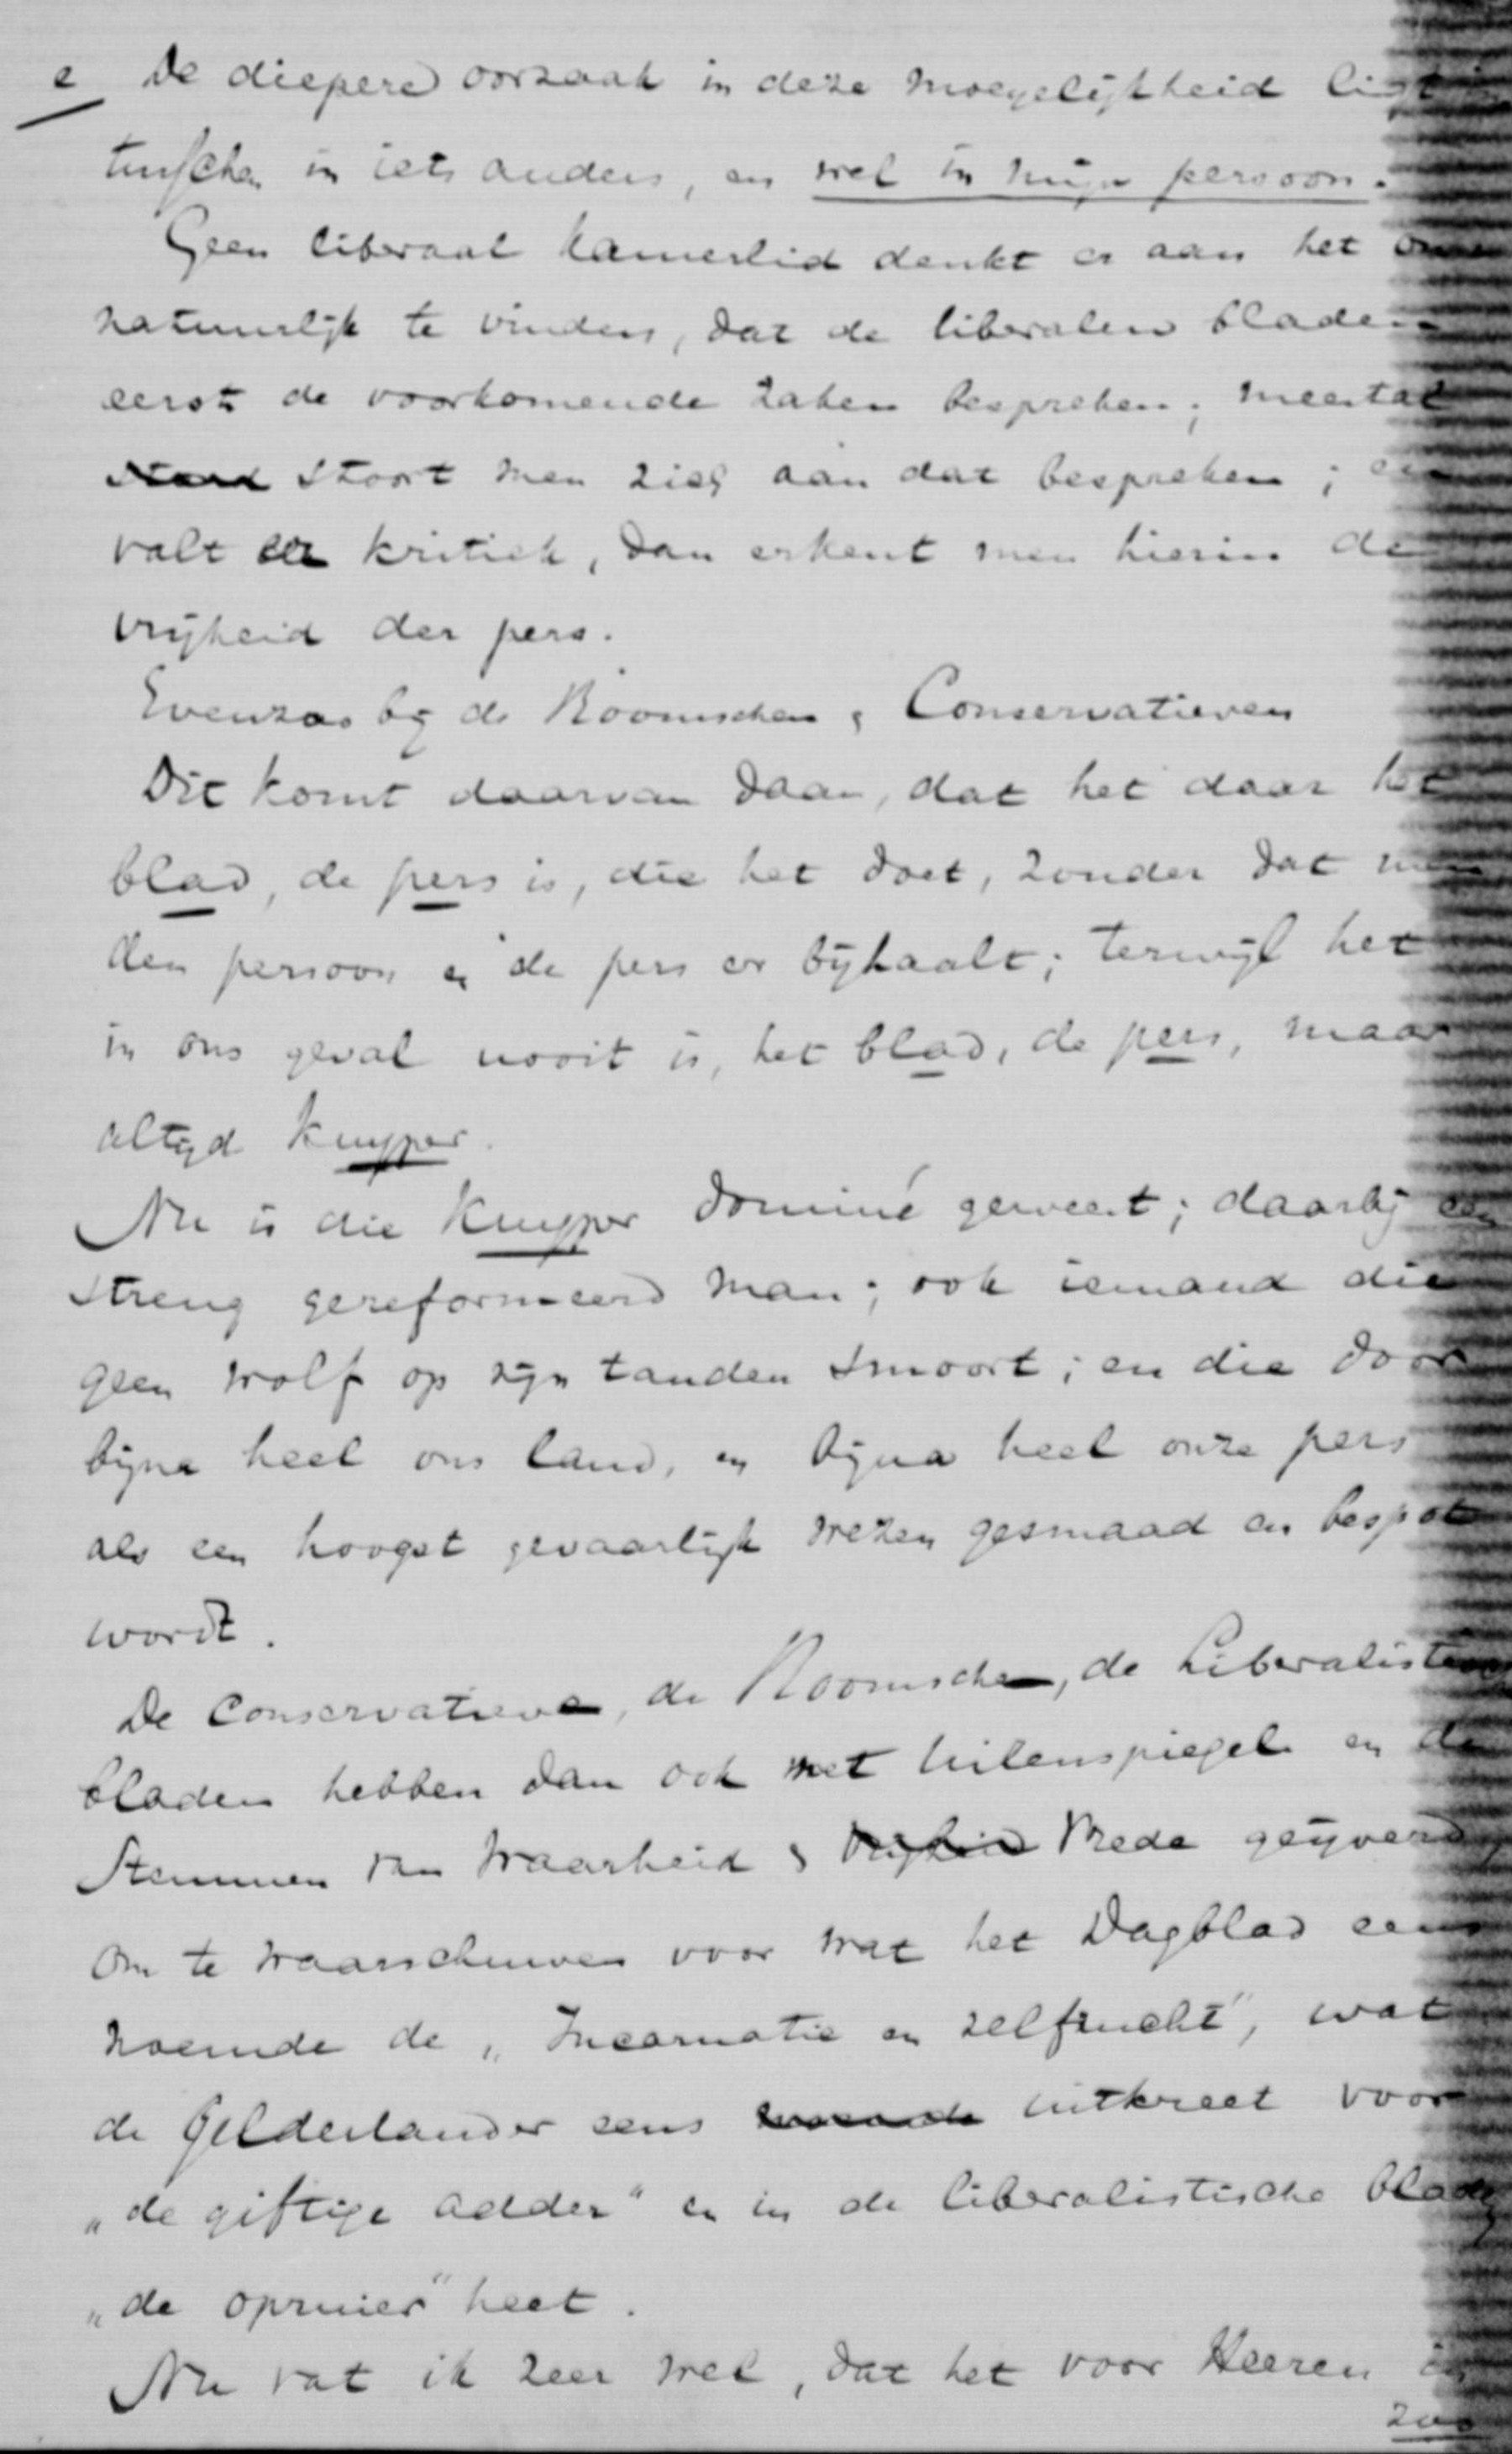 e De diepere oorzaak in deze moeyelijkheid ligt
tusschen in iets anders, en wel in mijn persoon.
Geen liberaal kamerlid denkt er aan het on
natuurlijk te vinden, dat de liberalen bladen
eerst de voorkomende zaken bespreken; meestal
stoort men zich aan dat bespreken;
valt er kritiek, dan erkent men hierin de
vrijheid der pers.
Evenzoo bij de Roomschen & Conservatieven
Dit komt daarvan daan, dat het daar het
blad, de pers is, die het doet, zonder dat men
den persoon in de pers er bijhaalt; terwijl het
in ons geval nooit is, het blad, de pers, maar
altijd Kuyper.
Nu is die Kuyper dominé geweest; daarbij een
streng gereformeerd man; ook iemand die
geen wolf op zijn tanden smoort; en die door
bijna heel ons land, en bijna heel onze pers
als een hoogst gevaarlijk wezen gesmaad en bespot
wordt.
De Conservatieve, de Roomsche, de Liberalisten
bladen hebben dan ook met Uilenspiegel en de
Stemmen van Waarheid & Vrede geijverd
om te waarschuwen voor wat het Dagblad eens
noemde de „Incarnatie en zelfzucht", wat
de Gelderlander eens uitkreet voor
„de giftige adder" en in de liberalistische bladen
„de opruier" heet.
Nu vat ik zeer wel, dat het voor Heeren in
zoo